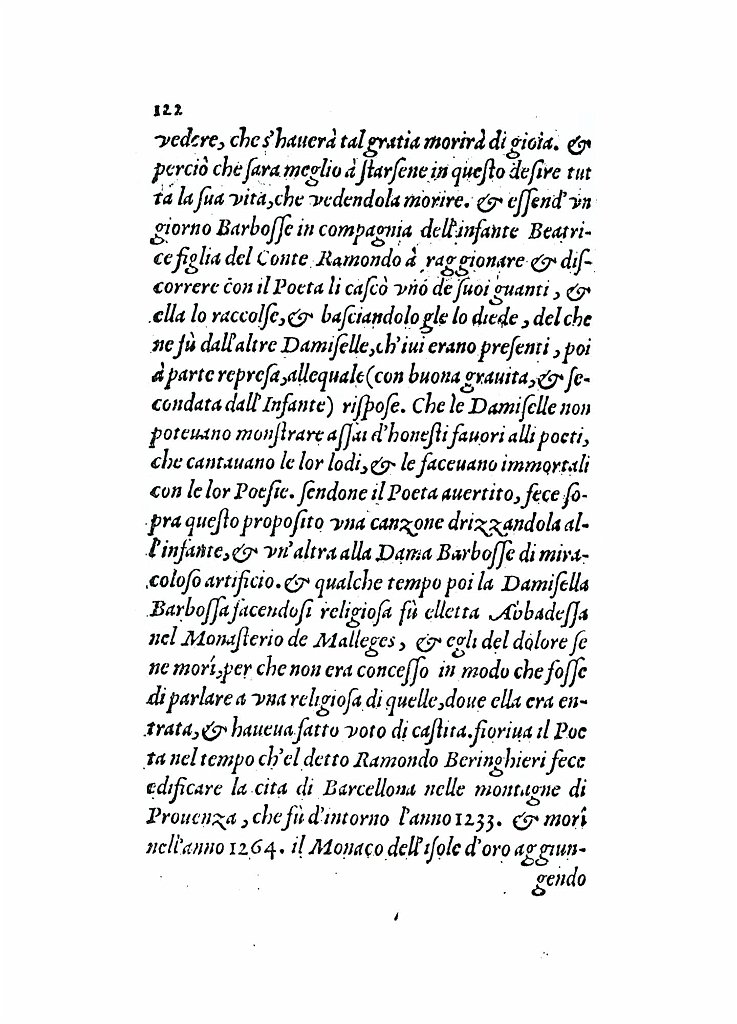 122
vedere, che s'hauerà tal gratia morirà di gioia. &
perciò che sara meglio à ſtarſene in queſto deſire tut
ta la ſua vita, che vedendola morire. & eſſend' vn
giorno Barboſſe in compagnia dell'infante Beatri-
ce figlia del Conte Ramondo à raggionare & diſ-
correre con il Poeta li caſcò vno de ſuoi guanti, &
ella lo raccolſe, & baſciandolo gle lo diede, del che
ne fù dall'altre Damiſelle, ch'iui erano preſenti, poi
à parte represa, allequale (con buona grauita, & ſe-
condata dall'Infante) riſpoſe. Che le Damiſelle non
poteuano monſtrare aſſai d'honeſti fauori alli poeti,
che cantauano le lor lodi, & le faceuano immortali
con le lor Poeſie. ſendone il Poeta auertito, fece ſo-
pra queſto propoſito vna canzone drizzandola al-
l'infante, & vn'altra alla Dama Barboſſe di mira-
coloſo artificio. & qualche tempo poi la Damiſella
Barboſſa facendoſi religioſa fù elletta Abbadeſſa
nel Monaſterio de Malleges, & egli del dolore ſe
ne morì, per che non era conceſſo in modo che foſſe
di parlare a vna religioſa di quelle, doue ella era en-
trata, & haueua fatto voto di caſtita. fioriua il Poe
ta nel tempo ch'el detto Ramondo Beringhieri fece
edificare la cita di Barcellona nelle montagne di
Prouenza, che fù d'intorno l'anno 1233. & morì
nell'anno 1264. il Monaco dell'iſole d'oro aggiun-
gendo